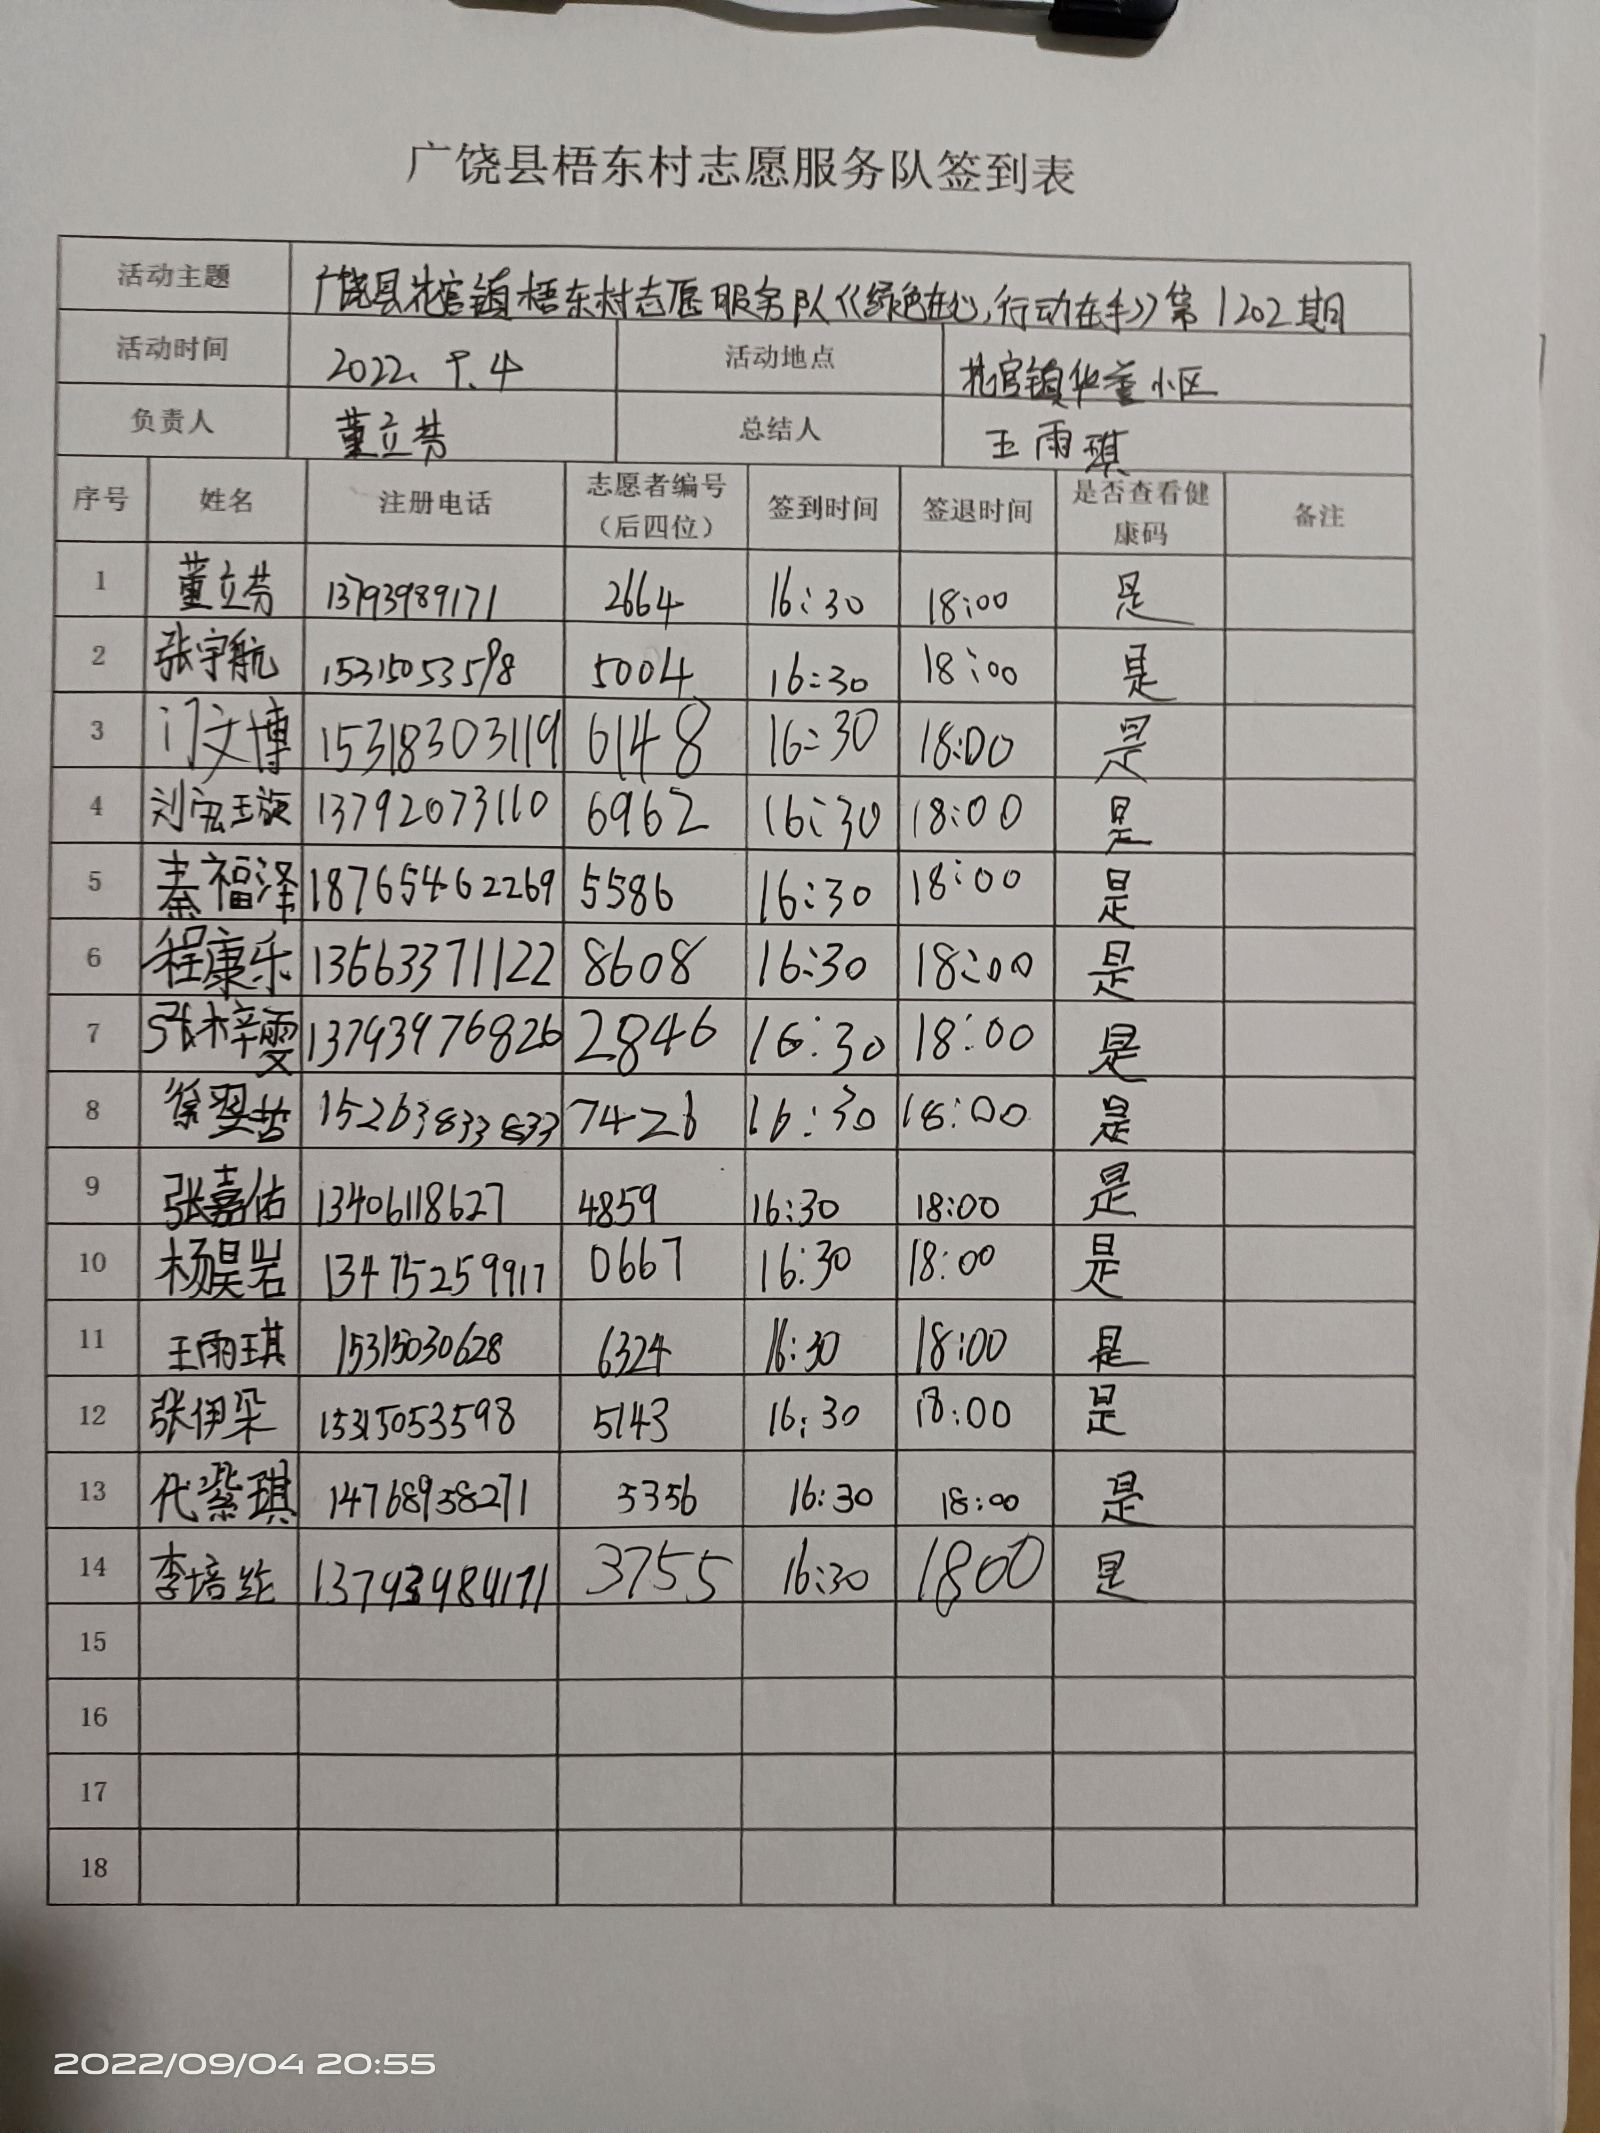 广饶县梧东村志愿服务队签到表
活动主题 广饶县花官镇梧东村志愿服务队《绿色在心,行动在手》第1202期
活动时间 2022.9.4 活动地点 花官镇华董小区
负责人 董立芬 总结人 王雨琪
序号 姓名 注册电话 志愿者编号（后四位） 签到时间 签退时间 是否查看健康码 备注
1 董立芬 13793989171 2664 16:30 18:00 是
2 张宇航 15315053598 5004 16:30 18:00 是
3 门文博 15318303119 6148 16:30 18:00 是
4 刘宏璇 13792073110 6962 16:30 18:00 是
5 秦福泽 18765462269 5586 16:30 18:00 是
6 程康乐 13563371122 8608 16:30 18:00 是
7 张梓雯 13793976826 2846 16:30 18:00 是
8 徐翌哲 15263833833 7426 16:30 18:00 是
9 张嘉佑 13406118627 4859 16:30 18:00 是
10 杨昊岩 13475259917 0667 16:30 18:00 是
11 王雨琪 15315030628 6324 16:30 18:00 是
12 张伊朵 15315053598 5143 16:30 18:00 是
13 代紫琪 14768958271 5356 16:30 18:00 是
14 李培 13793989171 3755 16:30 1800 是
15
16
17
18
2022/09/04 20:55